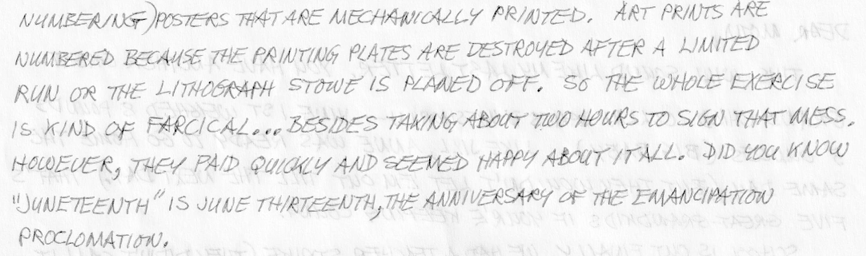 NUMBERING) POSTERS THAT ARE MECHANICALLY PRINTED. ART PRINTS ARE
NUMBERED BECAUSE THE PRINTING PLATES ARE DESTROYED AFTER A LIMITED
RUN OR THE LITHOGRAPH STONE IS PLANED OFF. SO THE WHOLE EXERCISE
IS KIND OF FARCICAL... BESIDES TAKING ABOUT TWO HOURS TO SIGN THAT MESS.
HOWEVER, THEY PAID QUICKLY AND SEEMED HAPPY ABOUT IT ALL. DID YOU KNOW
"JUNETEENTH" IS JUNE THIRTEENTH, THE ANNIVERSARY OF THE EMANCIPATION
PROCLOMATION.